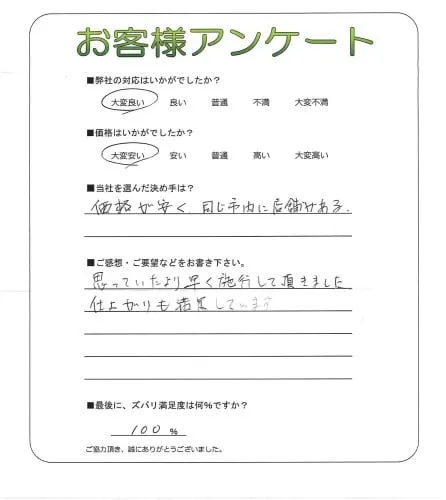 お客様アンケート
■弊社の対応はいかがでしたか?
大変良い 良い 普通 不満 大変不満
■価格はいかがでしたか?
大変安い 安い 普通 高い 大変高い
■当社を選んだ決め手は?
価格が安く、同じ市内に店舗がある。
■ご感想・ご要望などをお書き下さい。
思っていたより早く施行して頂きました
仕上がりも満足しています
■最後に、ズバリ満足度は何%ですか?
100 %
ご協力頂き、誠にありがとうございました。